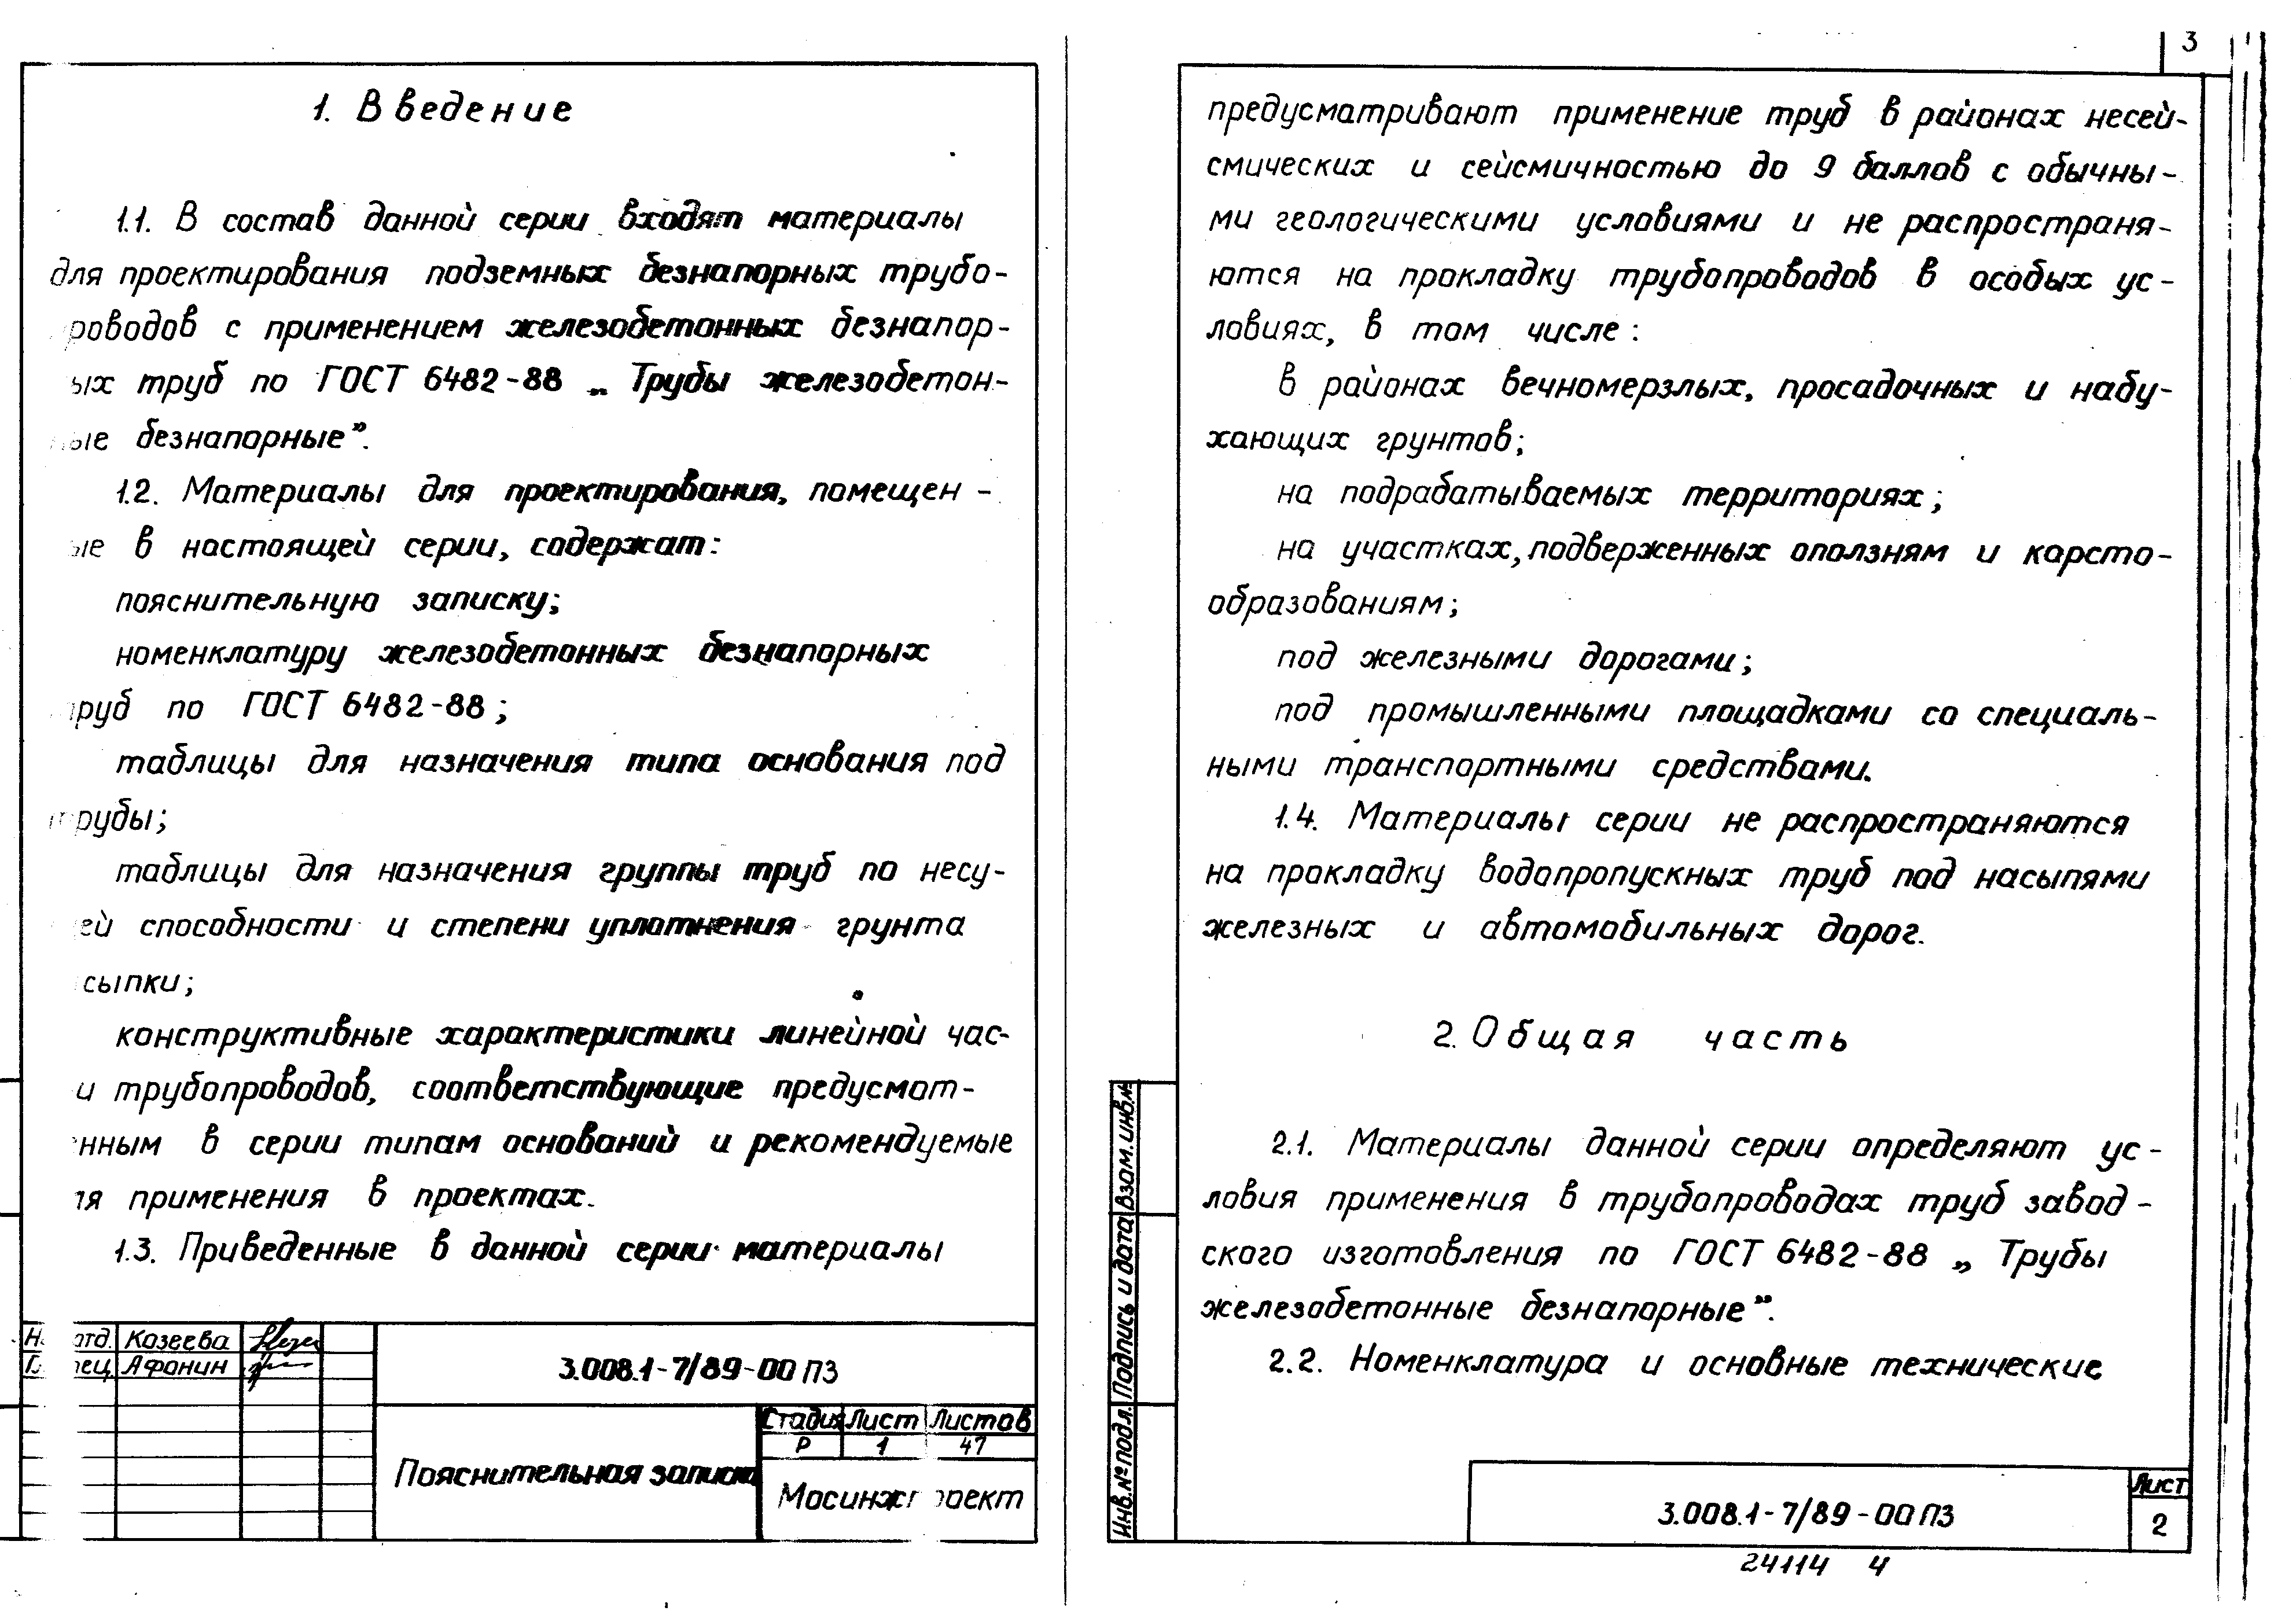 1. Введение
1.1. В состав данной серии входят материалы
для проектирования подземных безнапорных трубо-
роводов с применением железобетонных безнапор-
ых труб по ГОСТ 6482-88 „Трубы железобетон-
ные безнапорные”.
1.2. Материалы для проектирования, помещен-
ые в настоящей серии, содержат:
пояснительную записку;
номенклатуру железобетонных безнапорных
труб по ГОСТ 6482-88;
таблицы для назначения типа основания под
трубы;
таблицы для назначения группы труб по несу-
ей способности и степени уплотнения грунта
сыпки;
конструктивные характеристики линейной час-
и трубопроводов, соответствующие предусмот-
енным в серии типам оснований и рекомендуемые
ля применения в проектах.
1.3. Приведенные в данной серии материалы
отд. Казеева
пец. Афонин
3.008.1-7/89-00 ПЗ
Пояснительная записка
Стадия Лист Листов
Р 1 47
Мосинжпроект
3
предусматривают применение труб в районах несей-
смических и сейсмичностью до 9 баллов с обычны-
ми геологическими условиями и не распространя-
ются на прокладку трубопроводов в особых ус-
ловиях, в том числе:
в районах вечномерзлых, просадочных и набу-
хающих грунтов;
на подрабатываемых территориях;
на участках, подверженных оползням и карсто-
образованиям;
под железными дорогами;
под промышленными площадками со специаль-
ными транспортными средствами.
1.4. Материалы серии не распространяются
на прокладку водопропускных труб под насыпями
железных и автомобильных дорог.
2. Общая часть
2.1. Материалы данной серии определяют ус-
ловия применения в трубопроводах труб завод-
ского изготовления по ГОСТ 6482-88 „Трубы
железобетонные безнапорные”.
2.2. Номенклатура и основные технические
Инв.№подл. Подпись и дата Взам.инв.№
3.008.1-7/89-00 ПЗ
Лист
2
24114 4